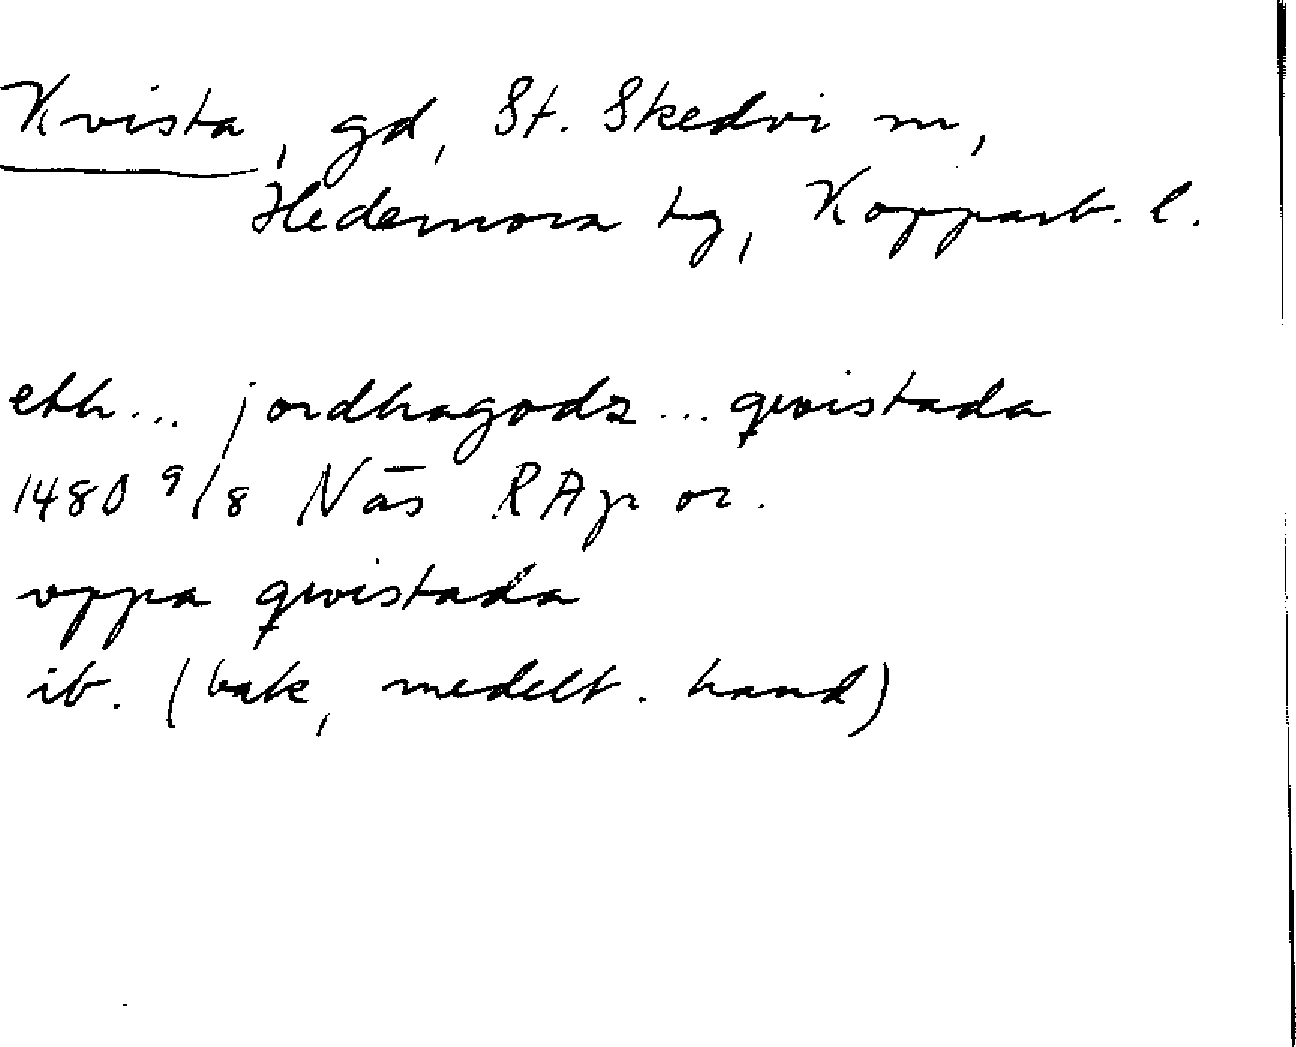 Kvista, gd, St. Skedvi sn,
Hedemora tg, Kopparb. l.
eth... jordhagodz... qwistada
1480 9/8 Näs RAp or.
vppa qwistada
ib. (bak, medelt. hand)